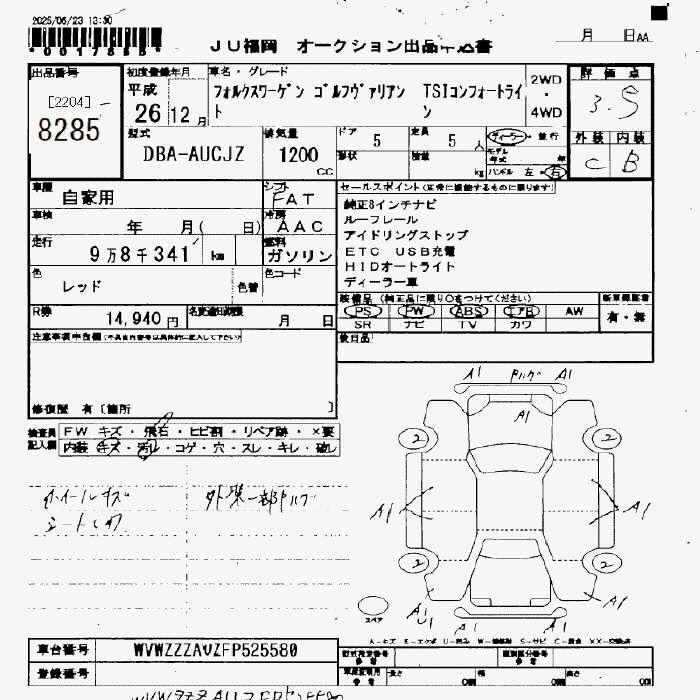 2025/06/23 13:30
JU福岡 オークション出品申込書
月 日 AA
出品番号
[2204]
8285
初度登録年月
平成
26 12 月
車名・グレード
フォルクスワーゲン ゴルフヴァリアン TSIコンフォートライ
ト ン
2WD
・
4WD
評価点
3.5
外装 内装
C B
型式
DBA-AUCJZ
排気量
1200
CC
ドア 5
定員 5 人
形状
積載 kg
ディーラー・並行
モデル年式 年
ハンドル 左・右
車歴
自家用
シフト
FAT
車検
年 月( 日)
冷房
AAC
走行
9万8千341 km
燃料
ガソリン
色
レッド
色替
色コード
セールスポイント(正常に機能するものに限ります)
純正8インチナビ
ルーフレール
アイドリングストップ
ETC USB充電
HIDオートライト
ディーラー車
R券
14,940 円
名変通知期限
月 日
装備品(純正品に限り○をつけてください)
PS PW ABS エアB AW
SR ナビ TV カワ
新車保証書
有・無
後日品
注意事項申告欄
修復歴 有〔箇所 〕
検査員
記入欄
FW キズ・飛石・ヒビ割・リペア跡・×要
内装 キズ・汚れ・コゲ・穴・スレ・キレ・破レ
A1 A1
A1
2 2
A1 A1
2 2
A1
A1 A1
スペア
車台番号
WVWZZZAUZFP525580
登録番号
型式指定番号
類別区分番号
長さ 幅 高さ